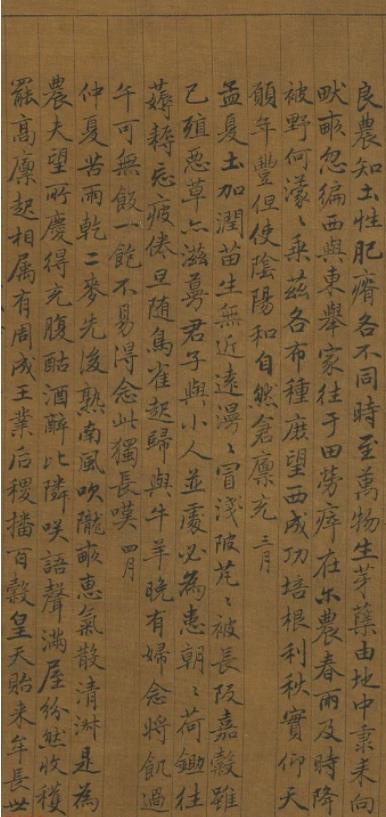 良農知土性肥瘠各不同時至萬物生芽蘖由地中秉耒向
畎畝忽徧西與東舉家往于田勞瘁在尔農春雨及時降
被野何濛〻乗茲各布種庶望西成功培根利秋實仰天
願年豐但使陰陽和自然倉廩充 三月
孟夏土加潤苗生無近遠漫〻冒淺陂芃〻被長阪嘉穀雖
已殖惡草亦滋蔓君子與小人並處必為患朝〻荷鋤往
薅耨忘疲倦旦随鳥雀起歸與牛羊晚有婦念將飢過
午可無飯一飽不易得念此獨長嘆 四月
仲夏苦雨乾二麥先後熟南風吹隴畝惠氣散清淑是為
農夫望所慶得充腹酤酒醉比隣咲語聲滿屋紛然收穫
罷高廩起相属有周成王業后稷播百穀皇天貽来牟長世